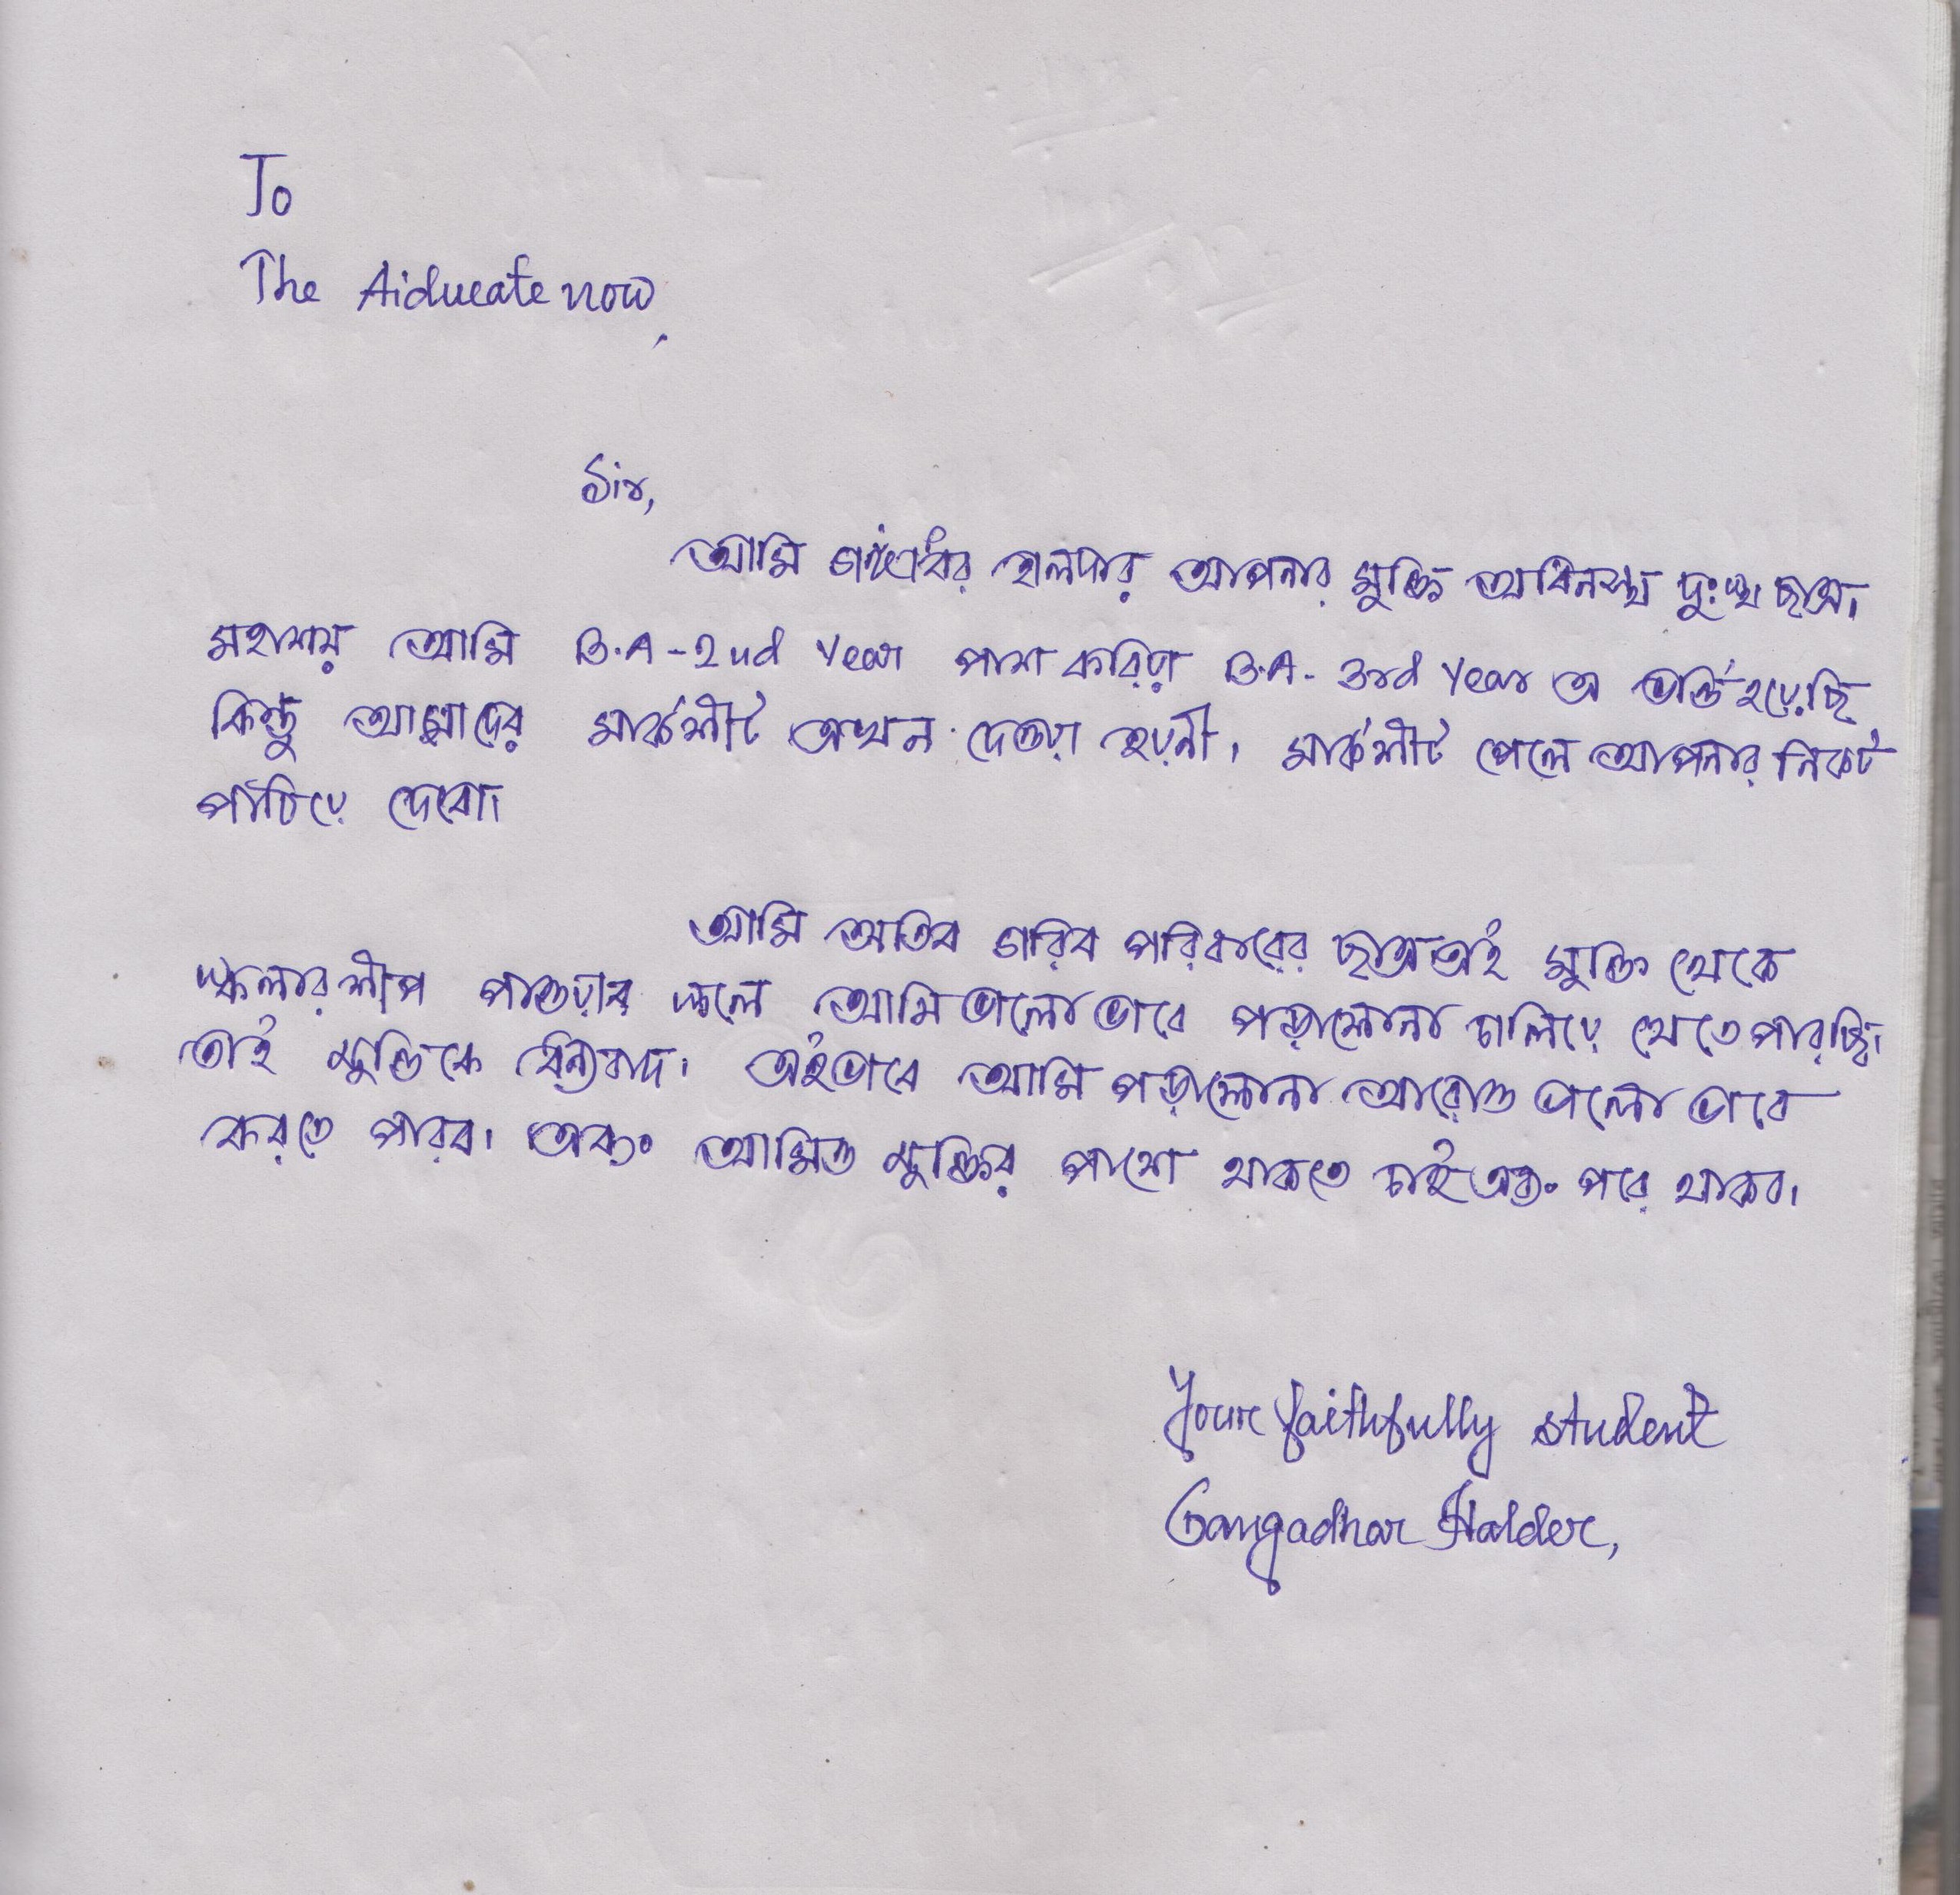 To
The Aiducate now,
Sir,
আমি গঙ্গাধর হালদার আপনার মুক্তি অধিনস্থ দুঃস্থ ছাত্র।
মহাশয় আমি B.A-2nd Year পাশ করিয়া B.A. 3rd Year এ ভর্তি হয়েছি
কিন্তু আমাদের মার্কশীট এখন দেওয়া হয়নী। মার্কশীট পেলে আপনার নিকট
পাঠিয়ে দেবো।
আমি অতিব গরিব পরিবারের ছাত্র তাই মুক্তি থেকে
স্কলারশীপ পাওয়ার ফলে আমি ভালো ভাবে পড়াশোনা চালিয়ে যেতে পারছি।
তাই মুক্তিকে ধন্যবাদ। এইভাবে আমি পড়াশোনা আরোও ভালো ভাবে
করতে পারব। এবং আমিও মুক্তির পাশে থাকতে চাই এবং পরে থাকব।
Your faithfully student
Gangadhar Halder,